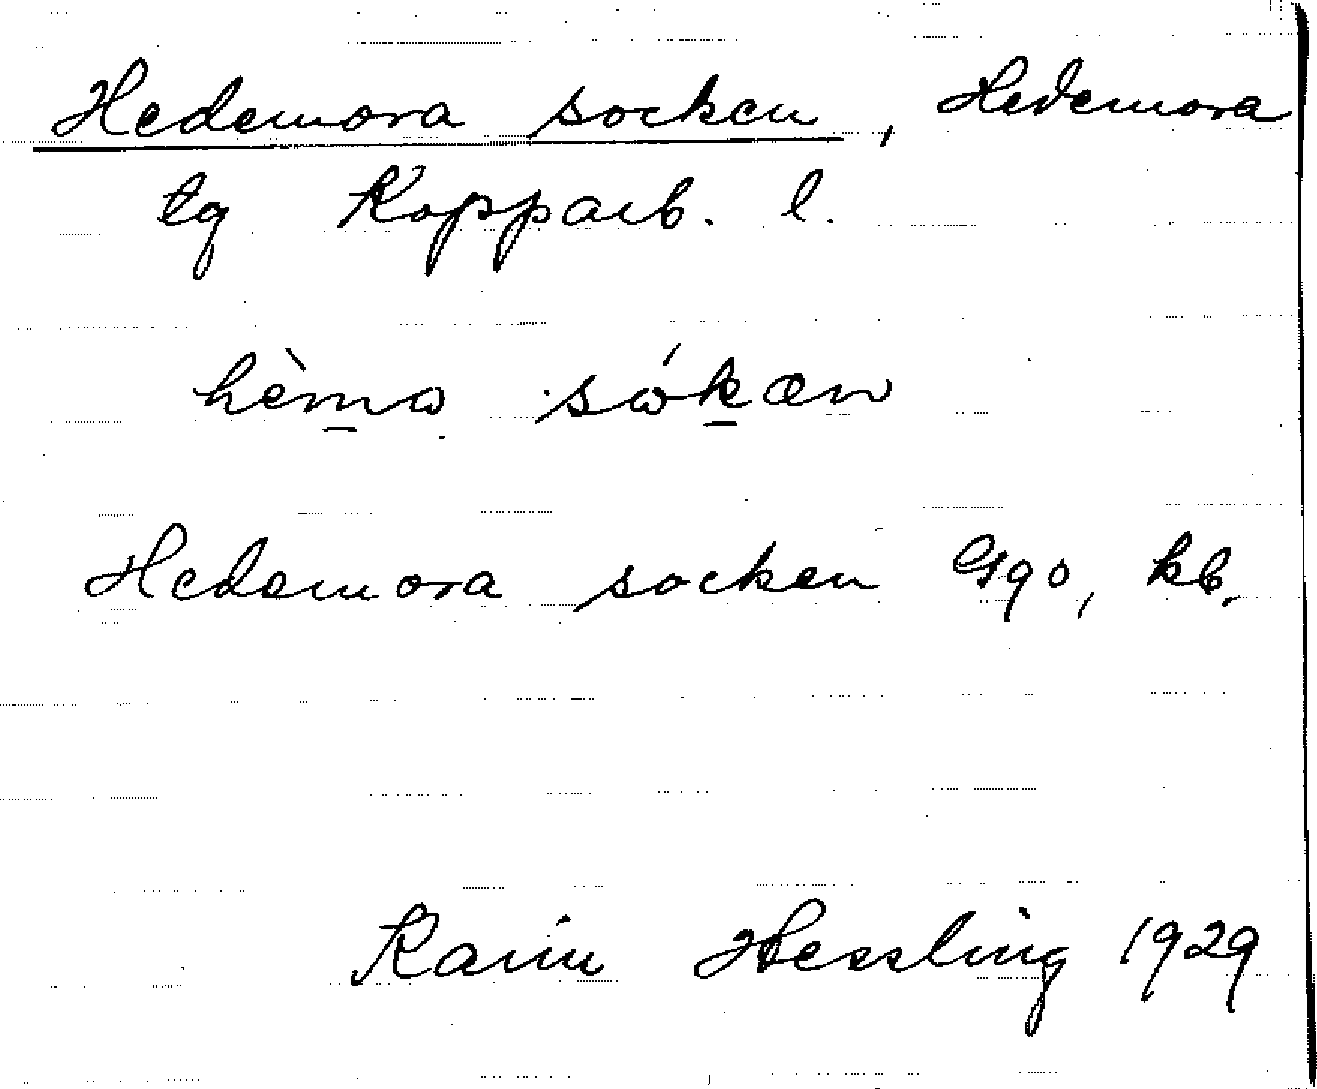 Hedemora socken, Hedemora
tg Kopparb. l.
hèmα sάkæn
Hedemora socken Ggo, kb.
Karin Hessling 1929